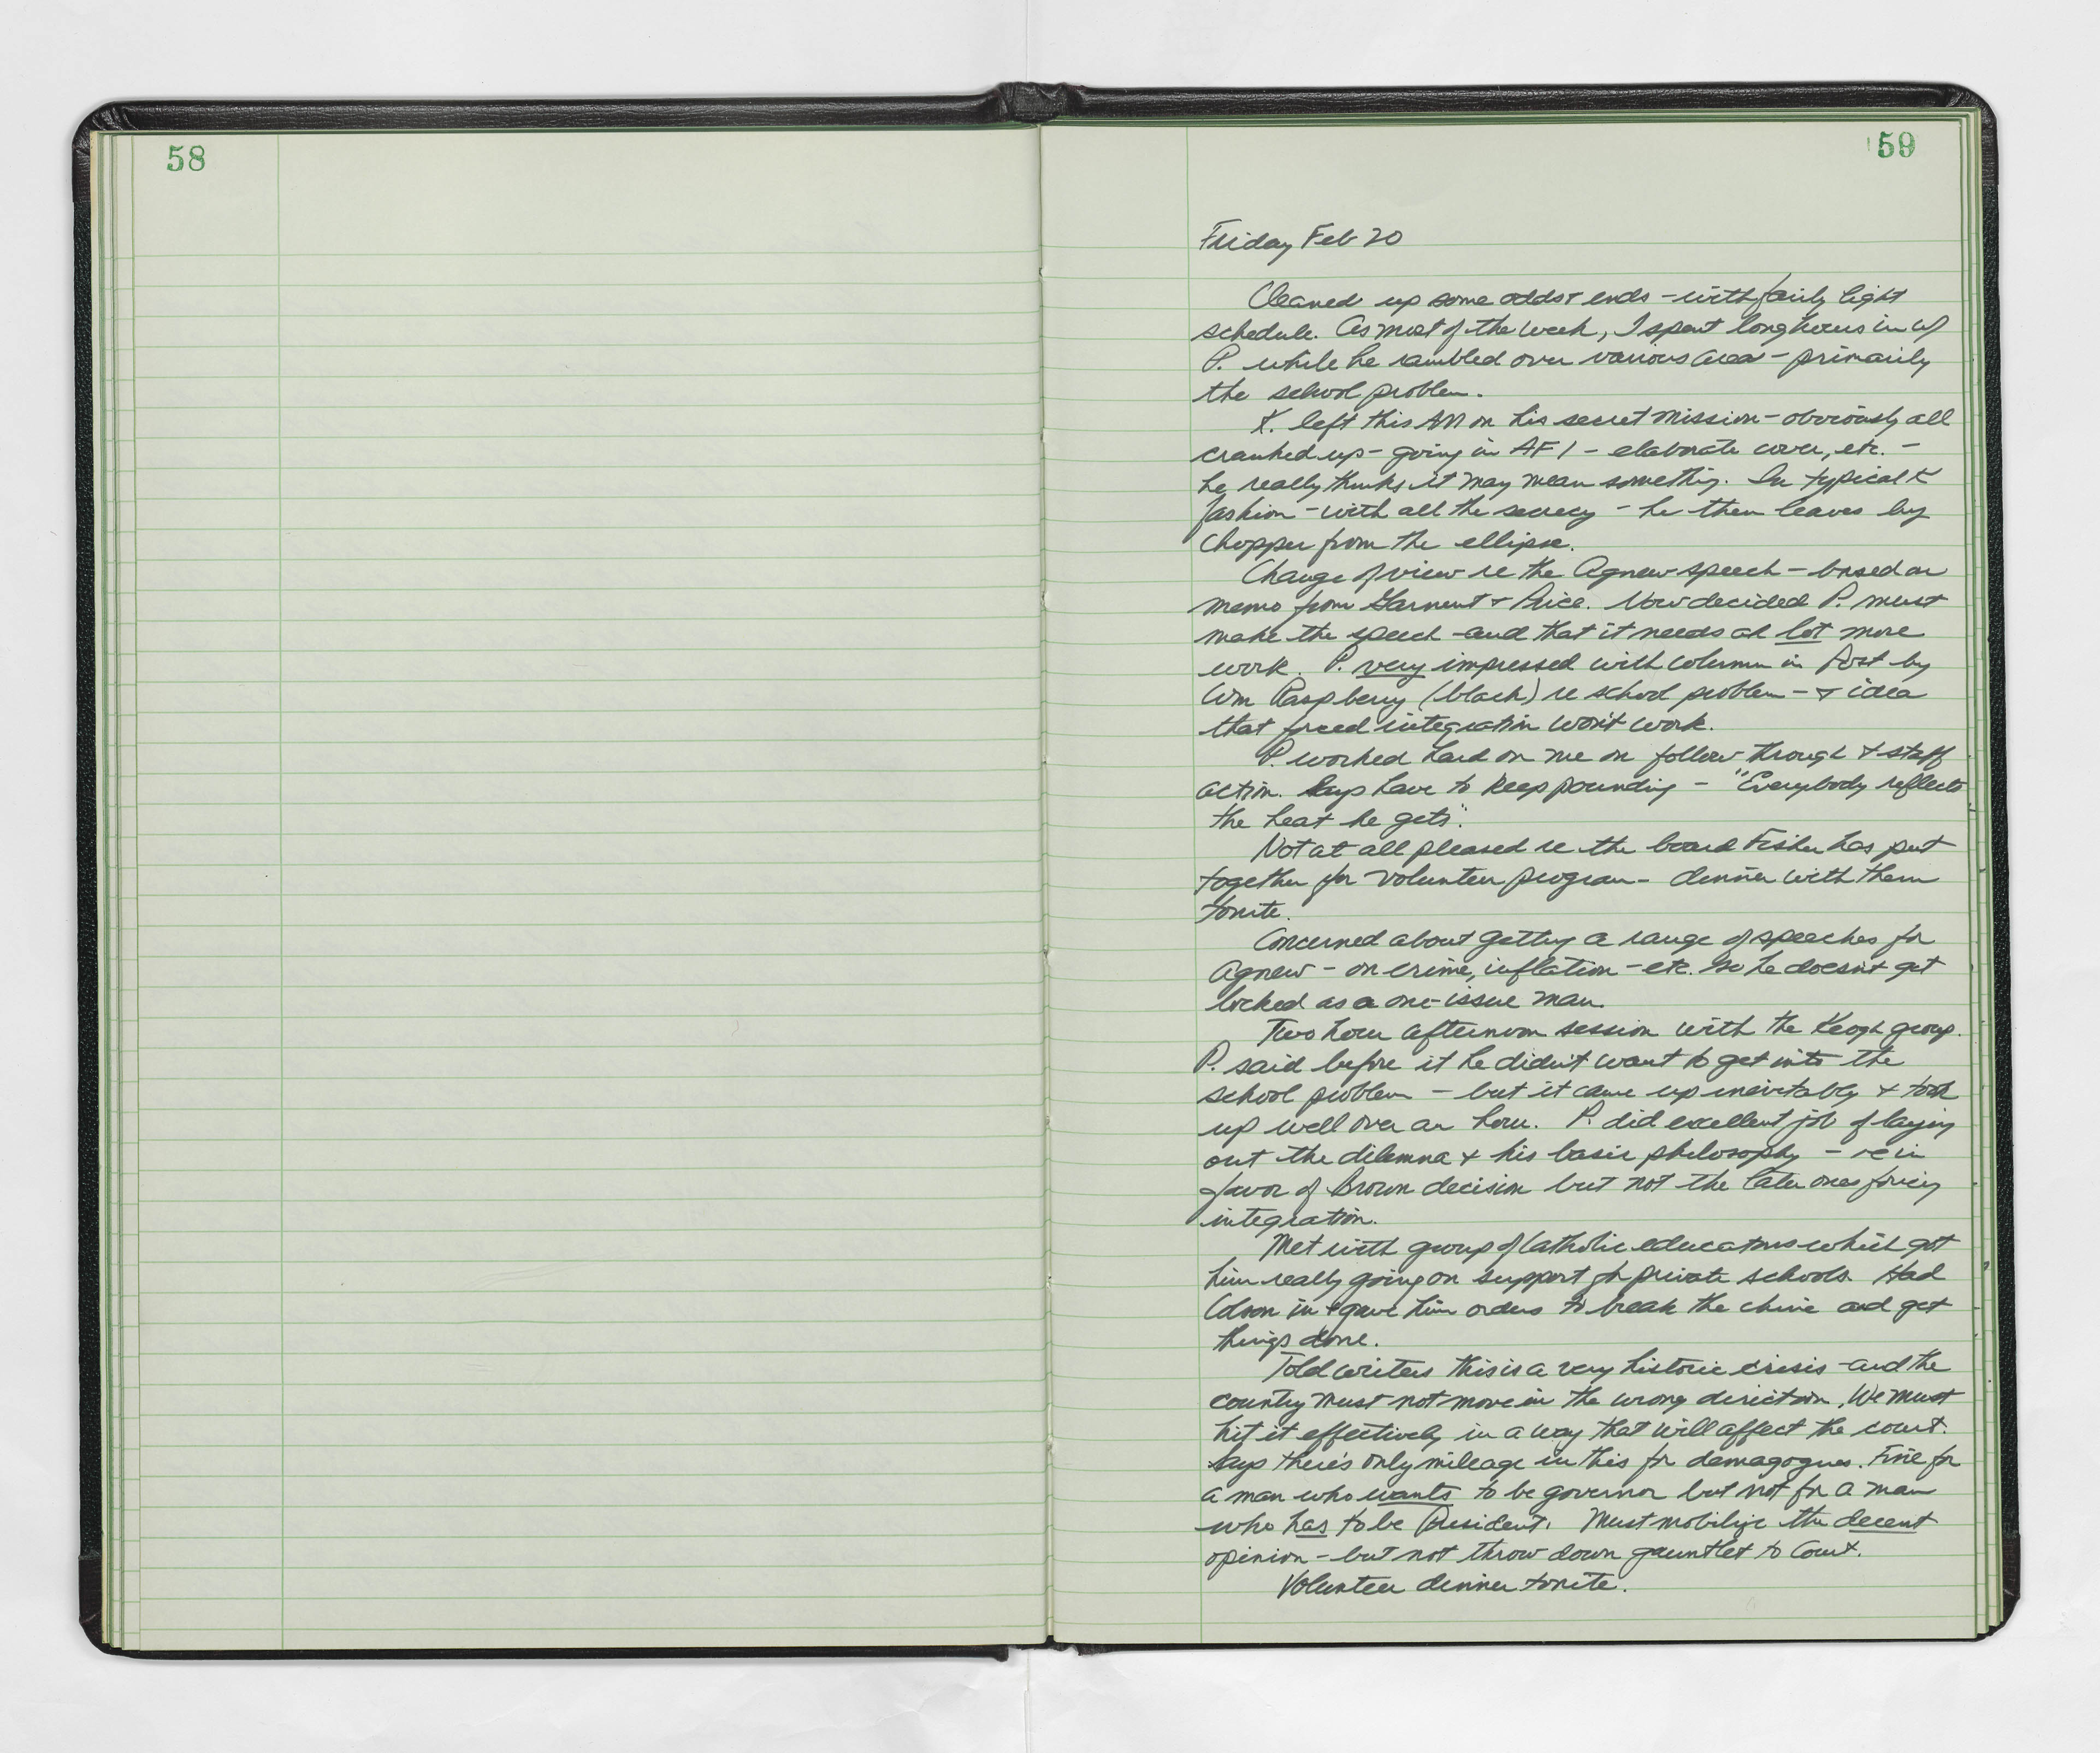 58
59
Friday Feb 20
Cleaned up some odds & ends - with fairly light
schedule. As most of the week, I spent long hours in w/
P. while he rambled over various area - primarily
the school problem.
K. left this AM on his secret mission - obviously all
cranked up - going in AF1 - elaborate cover, etc. -
he really thinks it may mean something. In typical K
fashion - with all the secrecy - he then leaves by
chopper from the ellipse.
Change of view re the Agnew speech - based on
memo from Garment & Price. Now decided P. must
make the speech - and that it needs a lot more
work. P. very impressed with column in Post by
Wm Raspberry (black) re school problem - & idea
that forced integration won't work.
P. worked hard on me on follow through & staff
action. Says have to keep pounding - "Everybody reflects
the heat he gets".
Not at all pleased re the board Fisher has put
together for volunteer program - dinner with them
tonite.
Concerned about getting a range of speeches for
Agnew - on crime, inflation - etc. so he doesn't get
locked as a one-issue man.
Two hour afternoon session with the Keogh group.
P. said before it he didn't want to get into the
school problem - but it came up inevitably & took
up well over an hour. P. did excellent job of laying
out the dilemna & his basic philosophy - ie in
favor of Brown decision but not the later ones forcing
integration.
Met with group of Catholic educators which got
him really going on support for private schools. Had
Colson in & gave him orders to break the china and get
things done.
Told writers this is a very historic crisis - and the
country must not move in the wrong direction. We must
hit it effectively in a way that will affect the court.
Says there's only mileage in this for demagogues. Fine for
a man who wants to be governor but not for a man
who has to be President. Must mobilize the decent
opinion - but not throw down gauntlet to Court.
Volunteer dinner tonite.